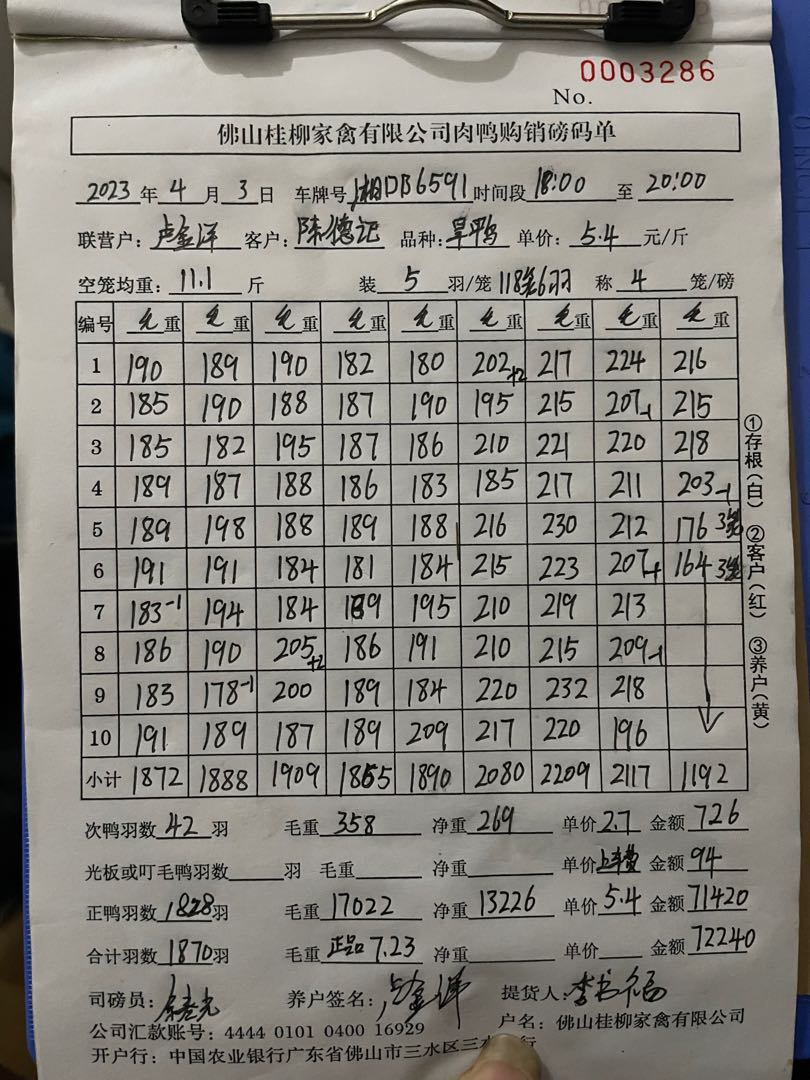 0003286
No.
佛山桂柳家禽有限公司肉鸭购销磅码单
2023 年 4 月 3 日 车牌号 湘DB6591 时间段 18:00 至 20:00
联营户: 卢金洋 客户: 陈德记 品种: 旱鸭 单价: 5.4 元/斤
空笼均重: 11.1 斤 装 5 羽/笼 118笼6羽 称 4 笼/磅
编号 毛重 毛重 毛重 毛重 毛重 毛重 毛重 毛重 毛重
1 190 189 190 182 180 202+2 217 224 216
2 185 190 188 187 190 195 215 207-1 215
3 185 182 195 187 186 210 221 220 218
4 189 187 188 186 183 185 217 211 203-1
5 189 198 188 189 188 216 230 212 176 3笼
6 191 191 184 181 184 215 223 207-1 164 3笼
7 183-1 194 184 189 195 210 219 213
8 186 190 205+2 186 191 210 215 209-1
9 183 178-1 200 189 184 220 232 218
10 191 189 187 189 209 217 220 196
小计 1872 1888 1909 1865 1890 2080 2209 2117 1192
①存根(白) ②客户(红) ③养户(黄)
次鸭羽数 42 羽 毛重 358 净重 269 单价 2.7 金额 726
光板或叮毛鸭羽数 羽 毛重 净重 单价 上车费 金额 94
正鸭羽数 1828 羽 毛重 17022 净重 13226 单价 5.4 金额 71420
合计羽数 1870 羽 毛重 正品 7.23 净重 单价 金额 72240
司磅员: 养户签名: 卢金洋 提货人: 李书福
公司汇款账号: 4444 0101 0400 16929 户名: 佛山桂柳家禽有限公司
开户行: 中国农业银行广东省佛山市三水区三水 行